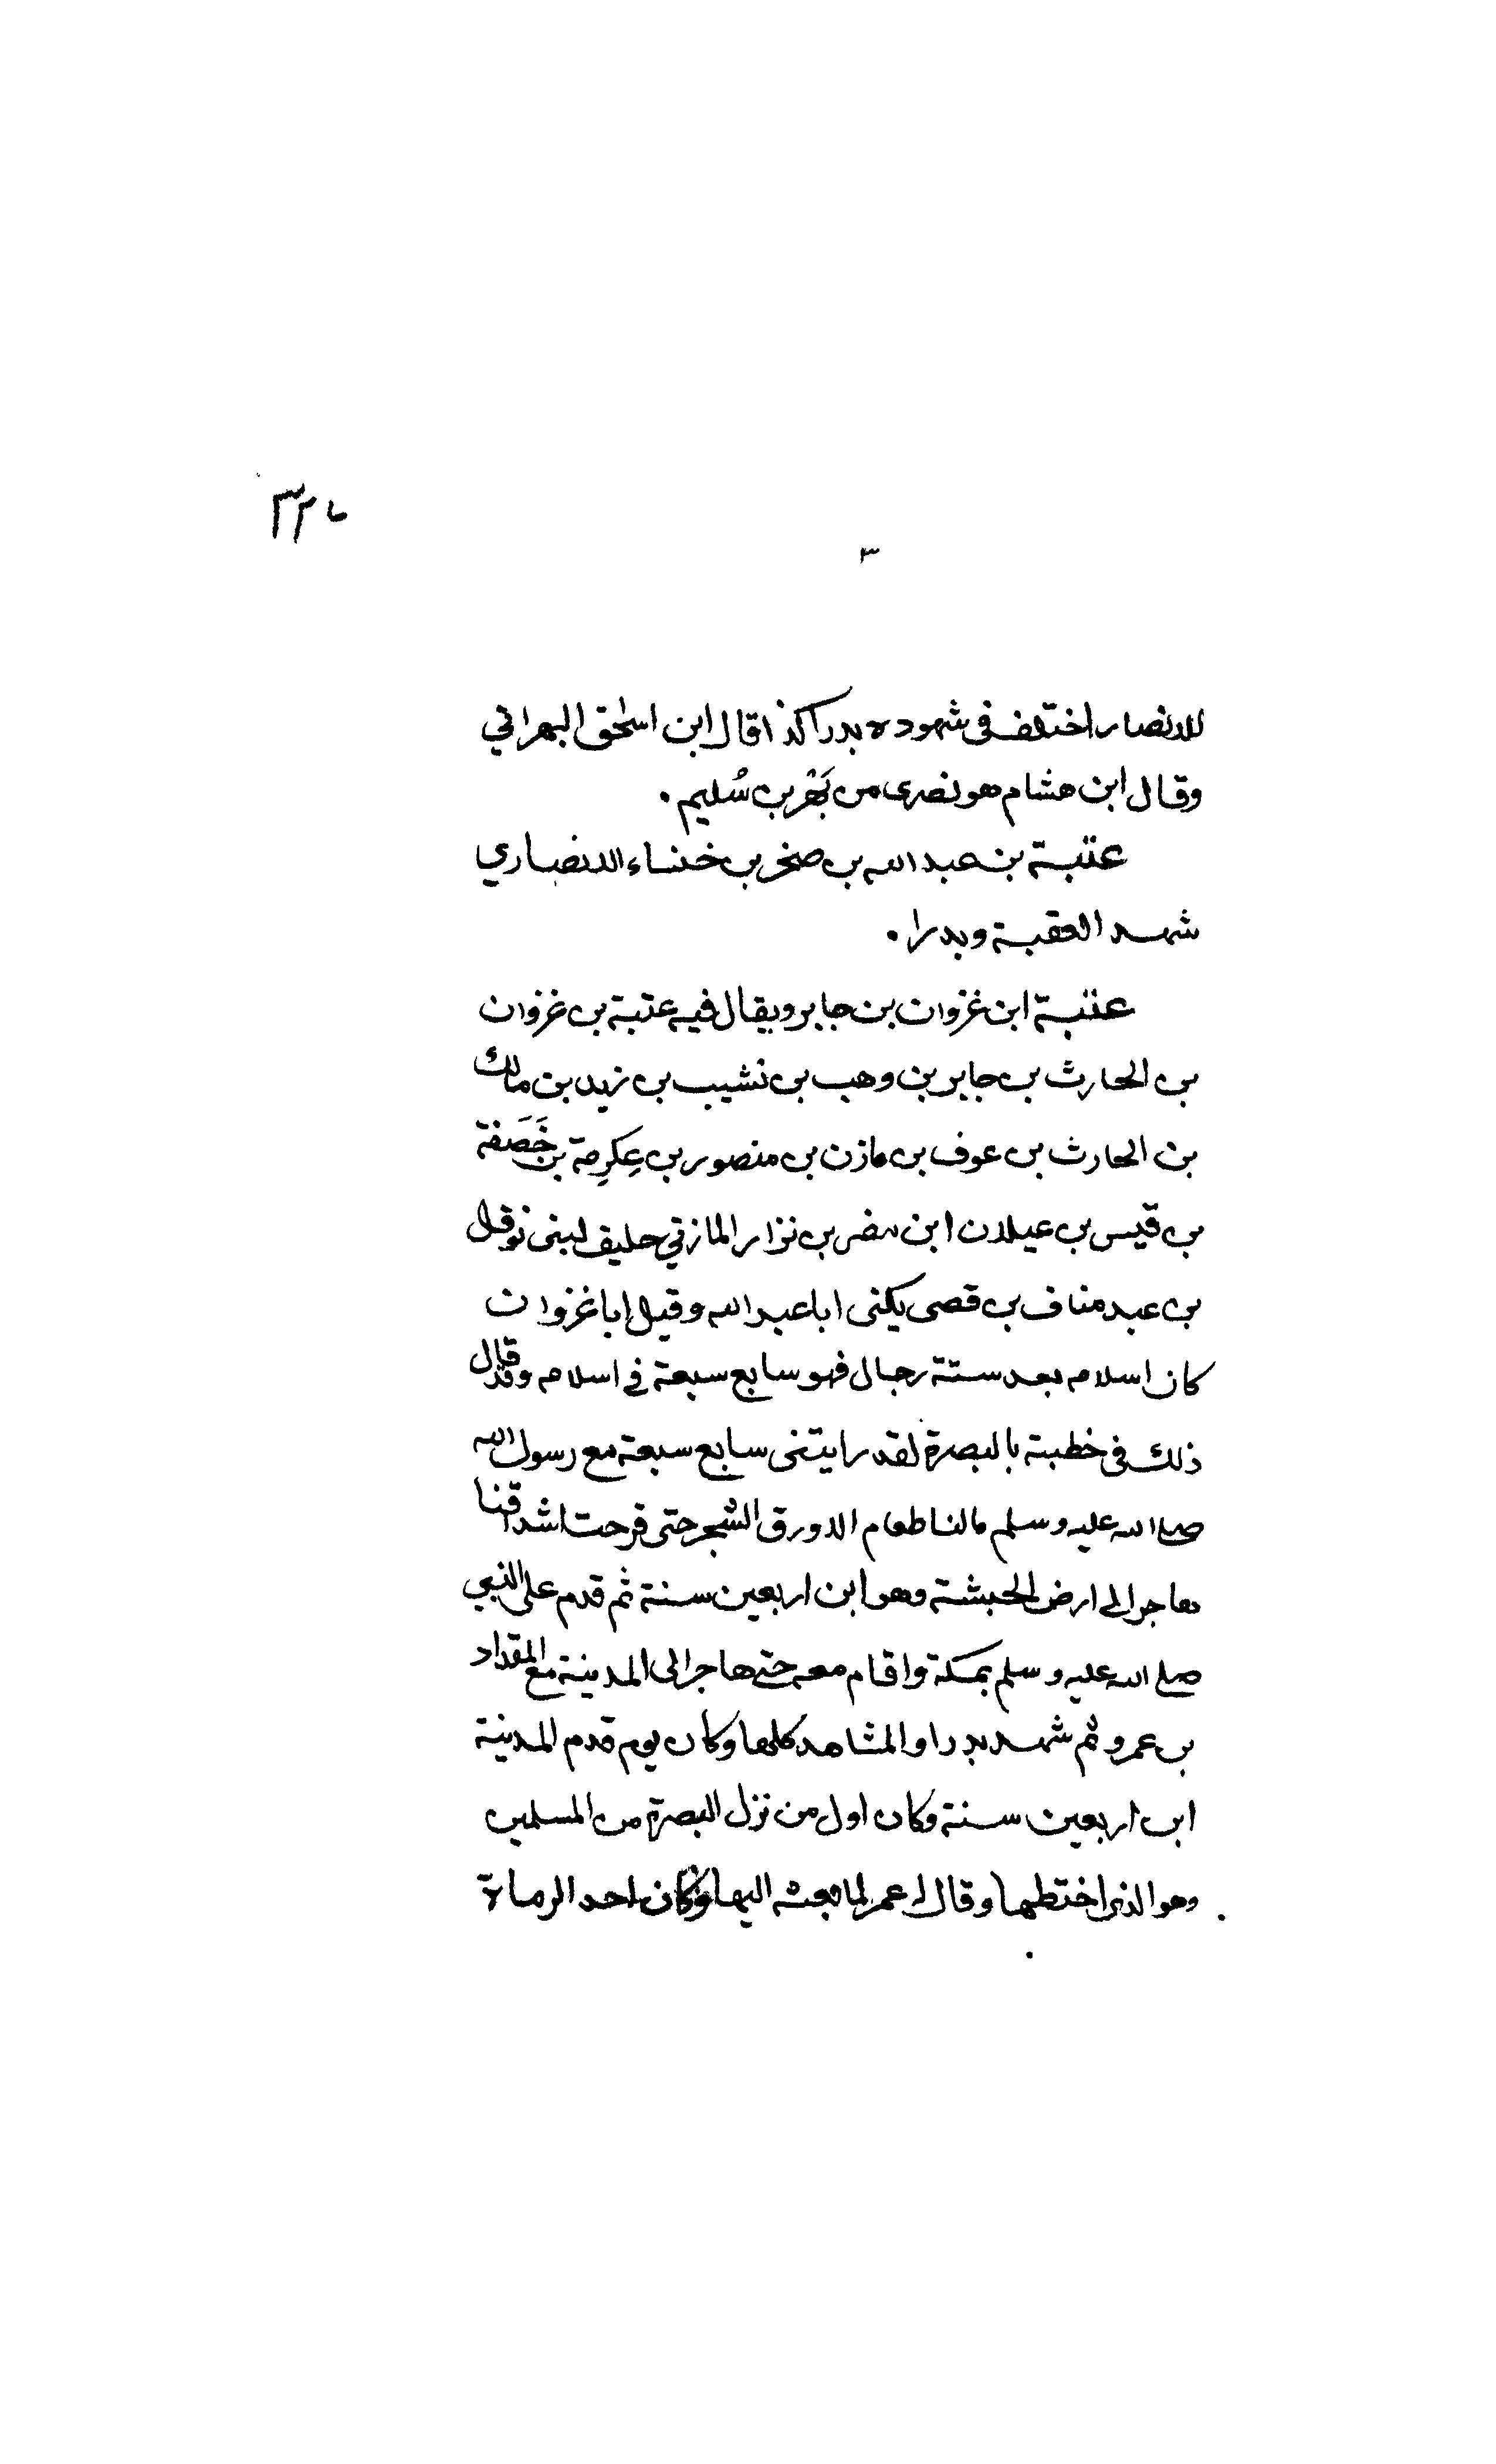 ٣
للانصار اختلف فى شهوده بدرا كذا قال ابن اسحق البهراني
وقال ابن هشام هو نصرى من بَهْز بن سُليم .
عتبة بن عبد الله بن صخر بن خنساء الانصاري
شهد العقبة وبدرا .
عتبة ابن غزوان بن جابر ويقال فيه عتبة بن غزوان
بن الحارث بن جابر بن وهب بن نشيب بن زيد بن مالك
بن الحارث بن عوف بن مازن بن منصور بن عِكرِمة بن خَصَفة
بن قيس بن عيلان ابن مضر بن نزار المازني حليف لبنى نوفل
بن عبد مناف بن قصى يكنى ابا عبد الله وقيل ابا غزوان
كان اسلام بعد ستة رجال فهو سابع سبعة في اسلام وقد قال
ذلك فى خطبته بالبصرة لقد رايتنى سابع سبعة مع رسول الله
صلى الله عليه وسلم مالنا طعام الا ورق الشجر حتى قرحت اشداقنا
هاجر الى ارض الحبشة وهو ابن اربعين سنة ثم قدم على النبي
صلى الله عليه وسلم بمكة واقام معه حتى هاجر الى المدينة مع المقداد
بن عمرو ثم شهد بدرا والمشاهد كلها وكان يوم قدم المدينة
ابن اربعين سنة وكان اول من نزل البصرة من المسلمين
وهو الذى اختطها وقال له عمر لما بعثه اليها وكان احد الرماة